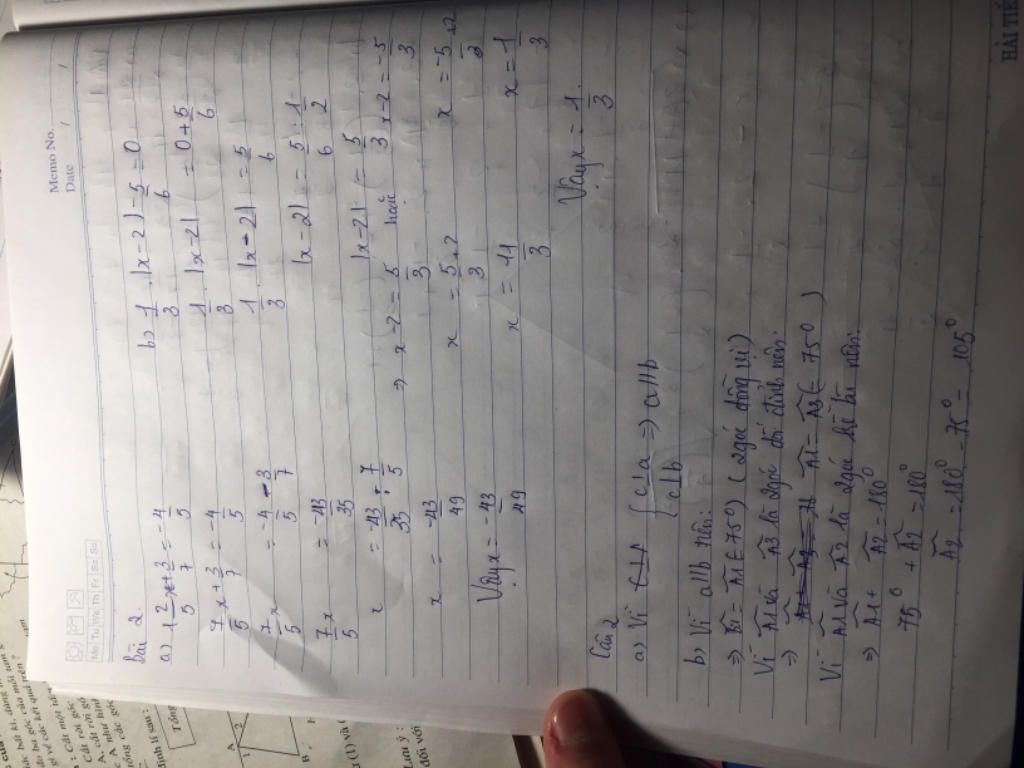 Memo No.
Date / /
Mo Tu We Th Fr Sa Su
Bài 2
a) 1 2/5 x + 3/7 = -4/5
7/5 x + 3/7 = -4/5
7/5 x = -4/5 - 3/7
7/5 x = -43/35
x = -43/35 : 7/5
x = -43/49
Vậy x = -43/49
b) 1/3 . |x-2| - 5/6 = 0
1/3 . |x-2| = 0 + 5/6
1/3 |x-2| = 5/6
|x-2| = 5/6 : 1/2
|x-2| = 5/3
=> x-2 = 5/3 hoặc x-2 = -5/3
x = 5/3 + 2 x = -5/3 + 2
x = 11/3 x = 1/3
Vậy x = 1/3
Câu 2
a) Vì { c⊥a => a//b
{ c⊥b
b) Vì a//b nên:
=> B1 = A1 (= 75°) (2 góc đồng vị)
Vì A1 và A3 là 2 góc đối đỉnh nên:
=> A1 = A3 (= 75°)
Vì A1 và A2 là 2 góc kề bù nên:
=> A1 + A2 = 180°
75° + A2 = 180°
A2 = 180° - 75° = 105°
HẢI TIẾ